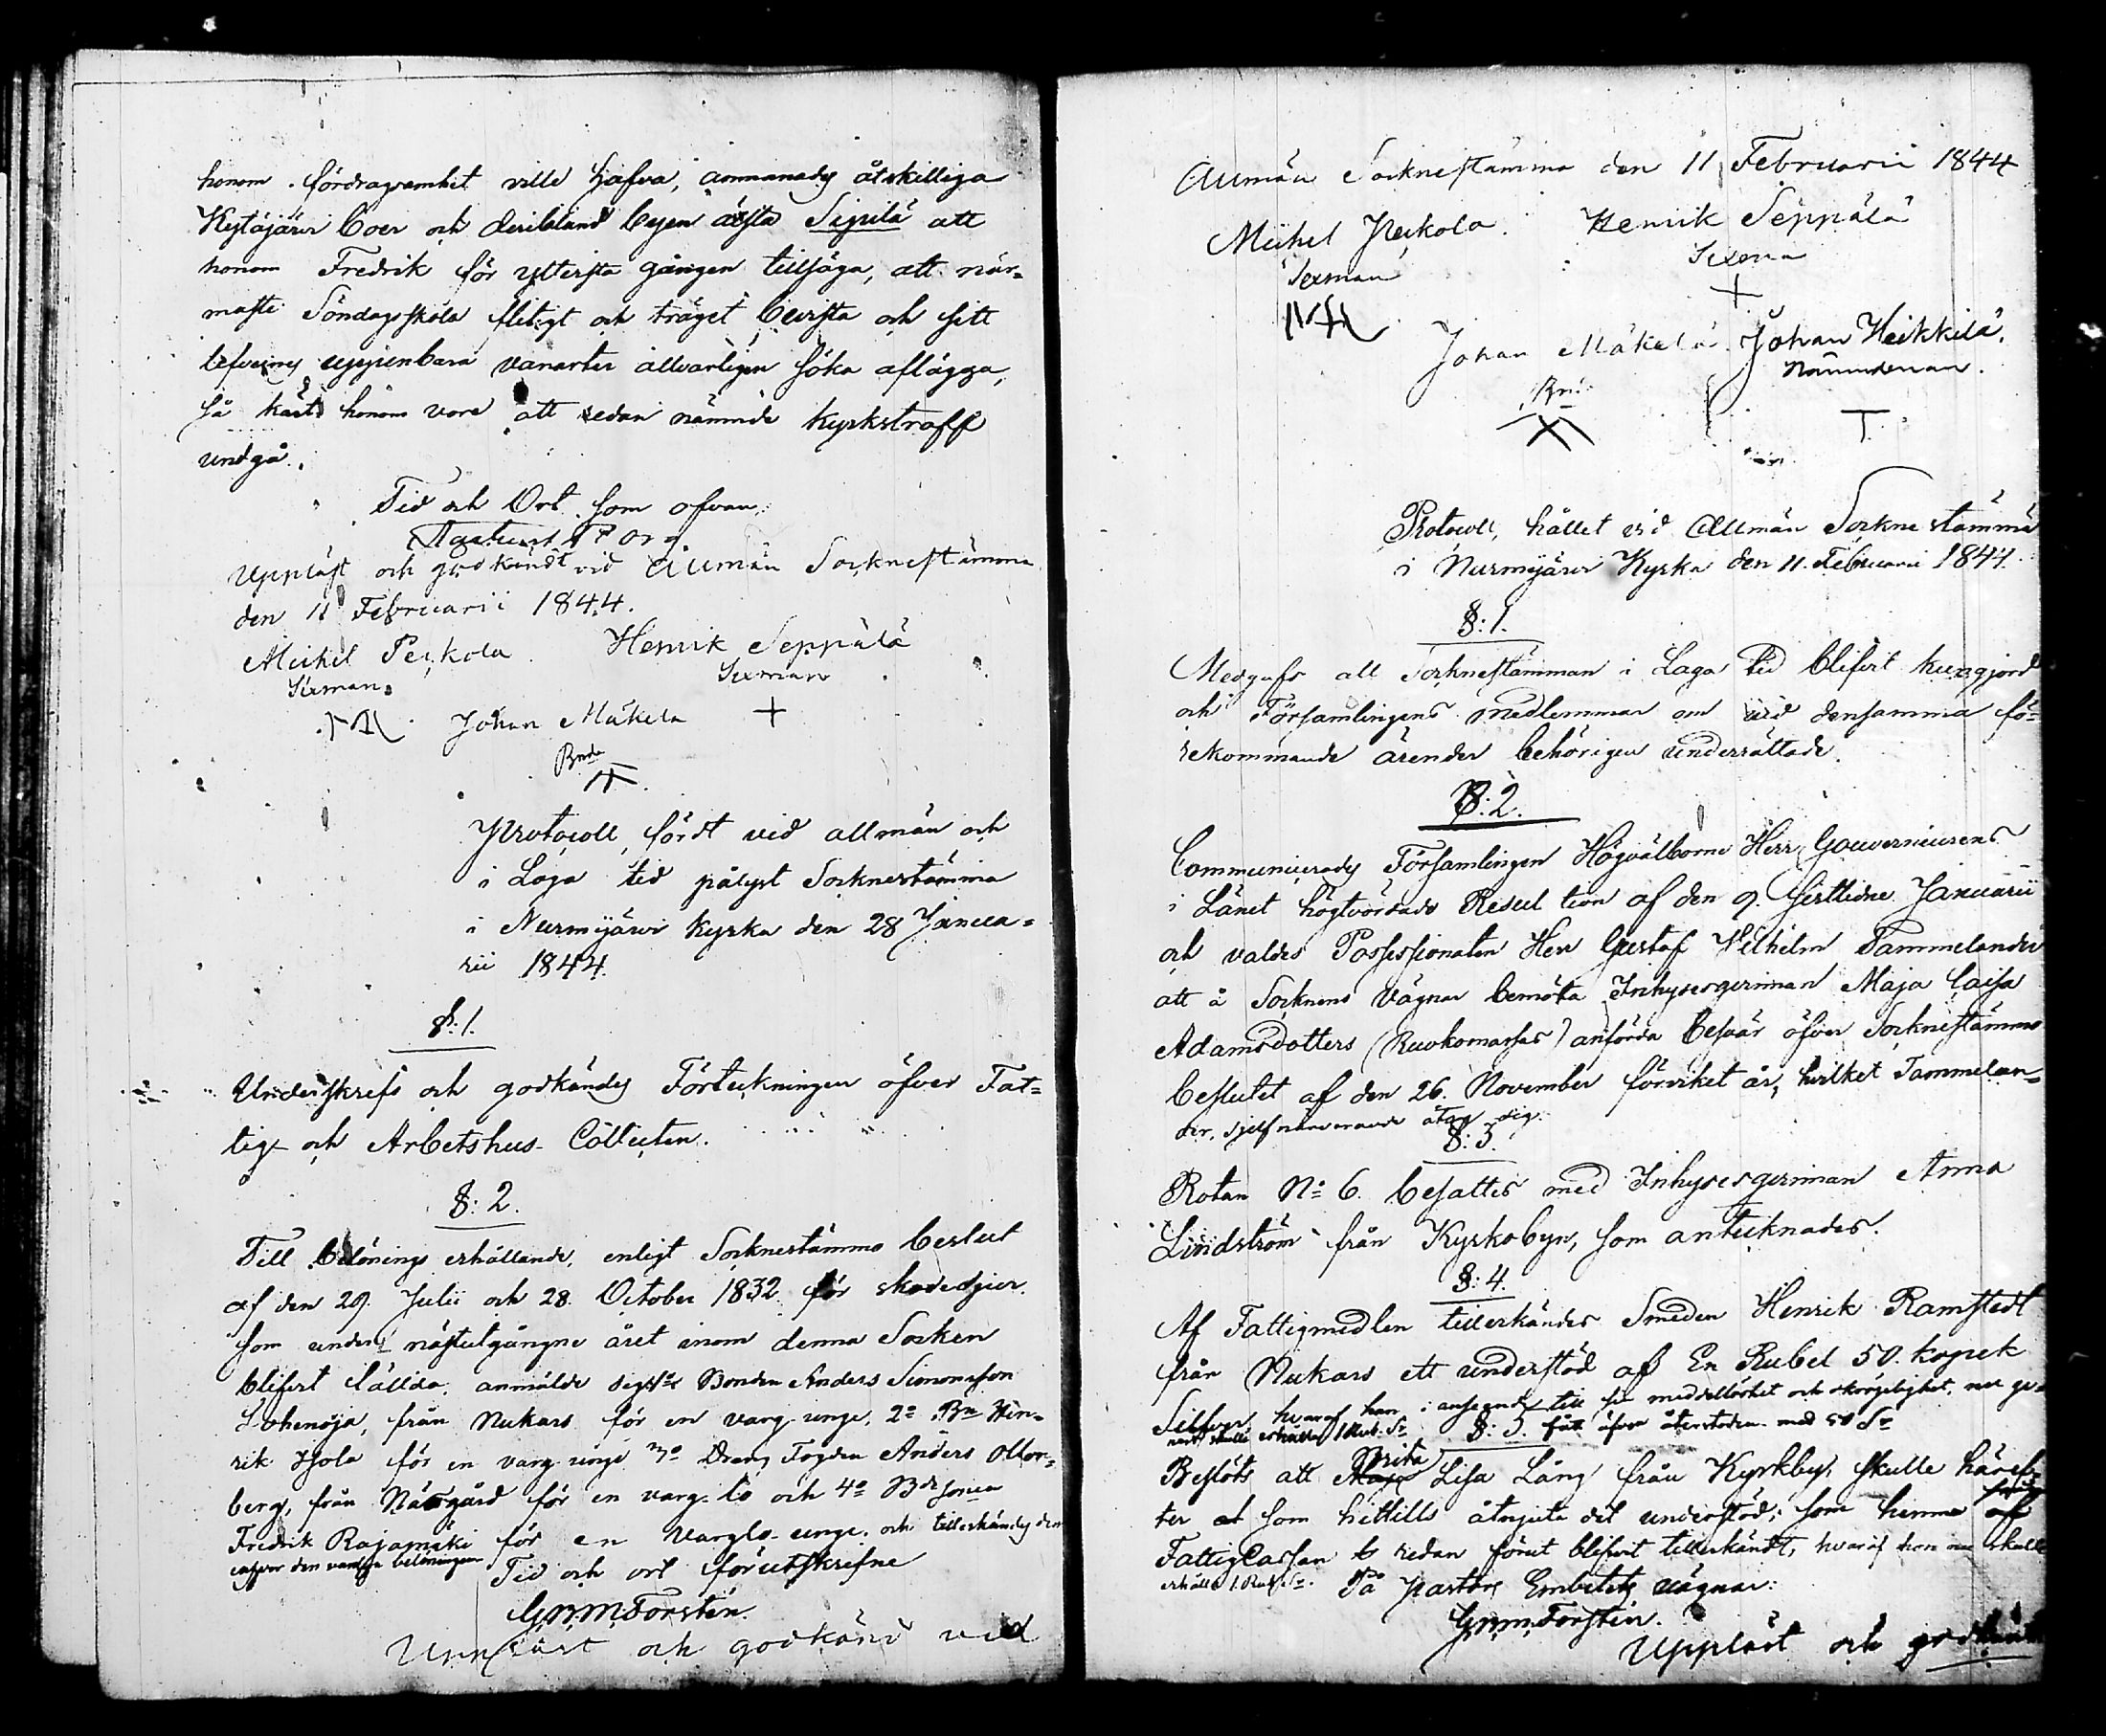 honom fördragsamhet ville hafva, anmanades åtskilliga
Kytäjärvi boer och deribland byen äldsta Sipilä att
honom Fredrik för yttersta gången tillsäga, att när-
maste Söndagsskola flitigt och träget bevista och sitt
lefvernes uppenbara vanarter allvarligen söka aflägga,
så kärt honom vore att sedan nämnde kyrkstraff
undgå.
Tid och Ort som ofvan
Uppläst och godkändt vid Allmän Socknestämma
den 11 Februarii 1844.
Michel Peckola Henrik Seppälä
Sexman Sexman
Johan Mäkelä
Bnde
Protocoll, fördt vid allmän och
i Laga tid pålyst Socknestämma
i Nurmijärvi Kyrka den 28 Janua-
rii 1844.
§: 1.
Underskrefs och godkändes Förteckningen öfver Fat-
tig- och Arbetshus-Collecten.
§: 2.
Till belönings erhållande, enligt Socknestämmo beslut
af den 29. Julii och 28. October 1832 för skadedjur
som under nästutgångne året inom denna Socken
blifvit fällda, anmälde sig 1o Bonden Anders Simonsson
Lohenoja, från Nukars för en varg-unge, 2o Bn Hen-
rik Isola för en varg-unge 3o Dreng Fogden Anders Ollon-
berg, från Näsgård för en varg-lo och 4o Bde sonen
Fredrik Rajamäki för en varglo-unge, och tillerkändes den
den vanliga belöningen
Tid och ort förutskrefne
G. W. M. Forstén.
Uppläst och godkänd vid
Allmän Socknestämma den 11 Februarii 1844
Michel Peckola. Henrik Seppälä
Sexman Sexman
Johan Mäkelä. Johan Heikkilä.
Bnd Nämndeman.
Protocoll, hållet vid Allmän Sockne stämma
i Nurmijärvi Kyrka den 11. Februarii 1844.
§: 1.
Medgafs att Socknestämman i Laga tid blifvit kungjord
och Församlingens medlemmar om vid densamma fö-
rekommande ärender behörigen underrättade.
§: 2.
Communicerades Församlingen Högvälborne Herr Gouverneurens
i Länet högtvördade Resolution af den 9. sistlidne Januarii
och valdes Possessionaten Herr Gustaf Wilhelm Tammelander
att å Socknens vägnar bemöta Inhysesqvinnan Maja Caisa
Adamsdotters anförda besvär öfver Sockneståmmo
beslutet af den 26. November förviket år, hvilket Tammelan-
der, sjelf närvarande åtog sig.
§: 3.
Rotan No 6. besattes med Inhysesqvinnan Anna
Lindström från Kyrkobyn, som antecknades.
§: 4.
Af Fattigmedlen tillerkändes Smeden Henrik Ramstedt
från Nukars ett understöd af En Rubel 50. kopek
Silfver, hvaraf han i anseende till sin medellöshet och skröpelighet, nu ge-
nast skulle erhålla 1 Rub. Sr §: 5. återstoden med 50 Sr
Beslöts att Brita Lisa Lång från Kyrkby, skulle häref-
ter som hittills åtnjuta det understöd, som henne af
FattigCassan redan förut blifvit tillerkändt, hvaraf hon nu skulle
erhålla 1. Rub. Sr. På Pastors Embetets vägnar:
G. W. M. Forstén.
Uppläst och godkändt